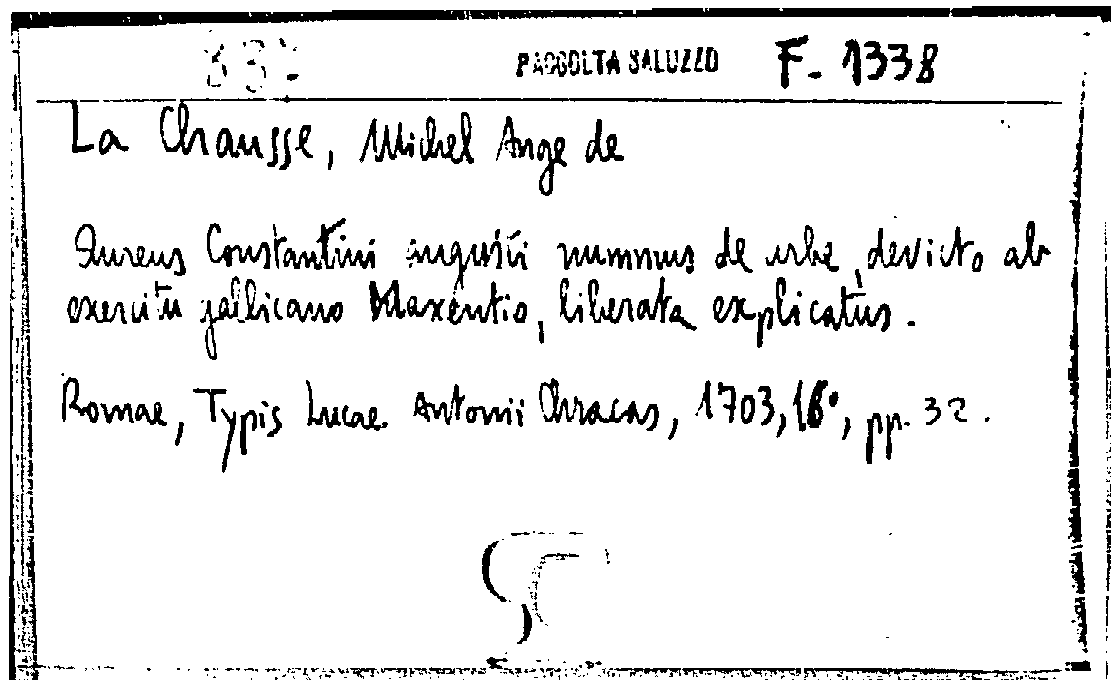 RACCOLTA SALUZZO F. 1338
La Chausse, Michel Ange de
Aureus Constantini augusti nummus de urbe, devicto ab
exercitu gallicano Maxentio, liberata explicatus.
Romae, Typis Lucae Antonii Chracas, 1703, 16°, pp. 32.